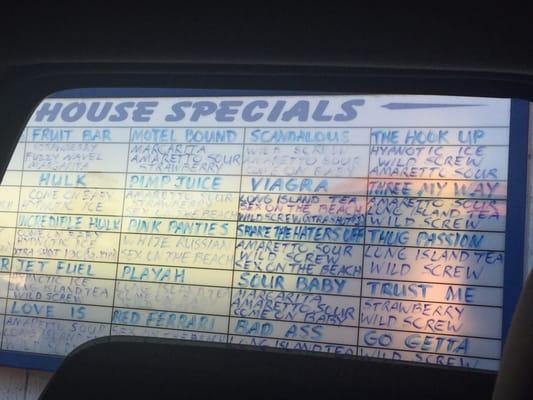 HOUSE SPECIALS
FRUIT BAR MOTEL BOUND SCANDALOUS THE HOOK UP
STRAWBERRY MARGARITA WILD SCREW HYPNOTIC ICE
FUZZY NAVEL AMARETTO SOUR AMARETTO SOUR WILD SCREW
STRAWBERRY COME ON BABY AMARETTO SOUR
HULK PIMP JUICE VIAGRA THREE MY WAY
COME ON BABY AMARETTO SOUR LONG ISLAND TEA AMARETTO SOUR
ICE STRAWBERRY SEX ON THE BEACH LONG ISLAND TEA
BEACH WILD SCREW WILD SCREW
INCREDIBLE HULK PINK PANTIES SHAKE THE HATERS OFF THUG PASSION
COME ON BABY WHITE RUSSIAN AMARETTO SOUR LONG ISLAND TEA
ICE SEX ON THE BEACH WILD SCREW WILD SCREW
SEX ON THE BEACH
JET FUEL PLAYAH SOUR BABY TRUST ME
ICE MARGARITA STRAWBERRY
ISLAND TEA COME ON BABY AMARETTO SOUR WILD SCREW
WILD SCREW COME ON BABY
LOVE IS RED FERRARI BAD ASS GO GETTA
AMARETTO SOUR SEX ON THE BEACH LONG ISLAND TEA WILD SCREW